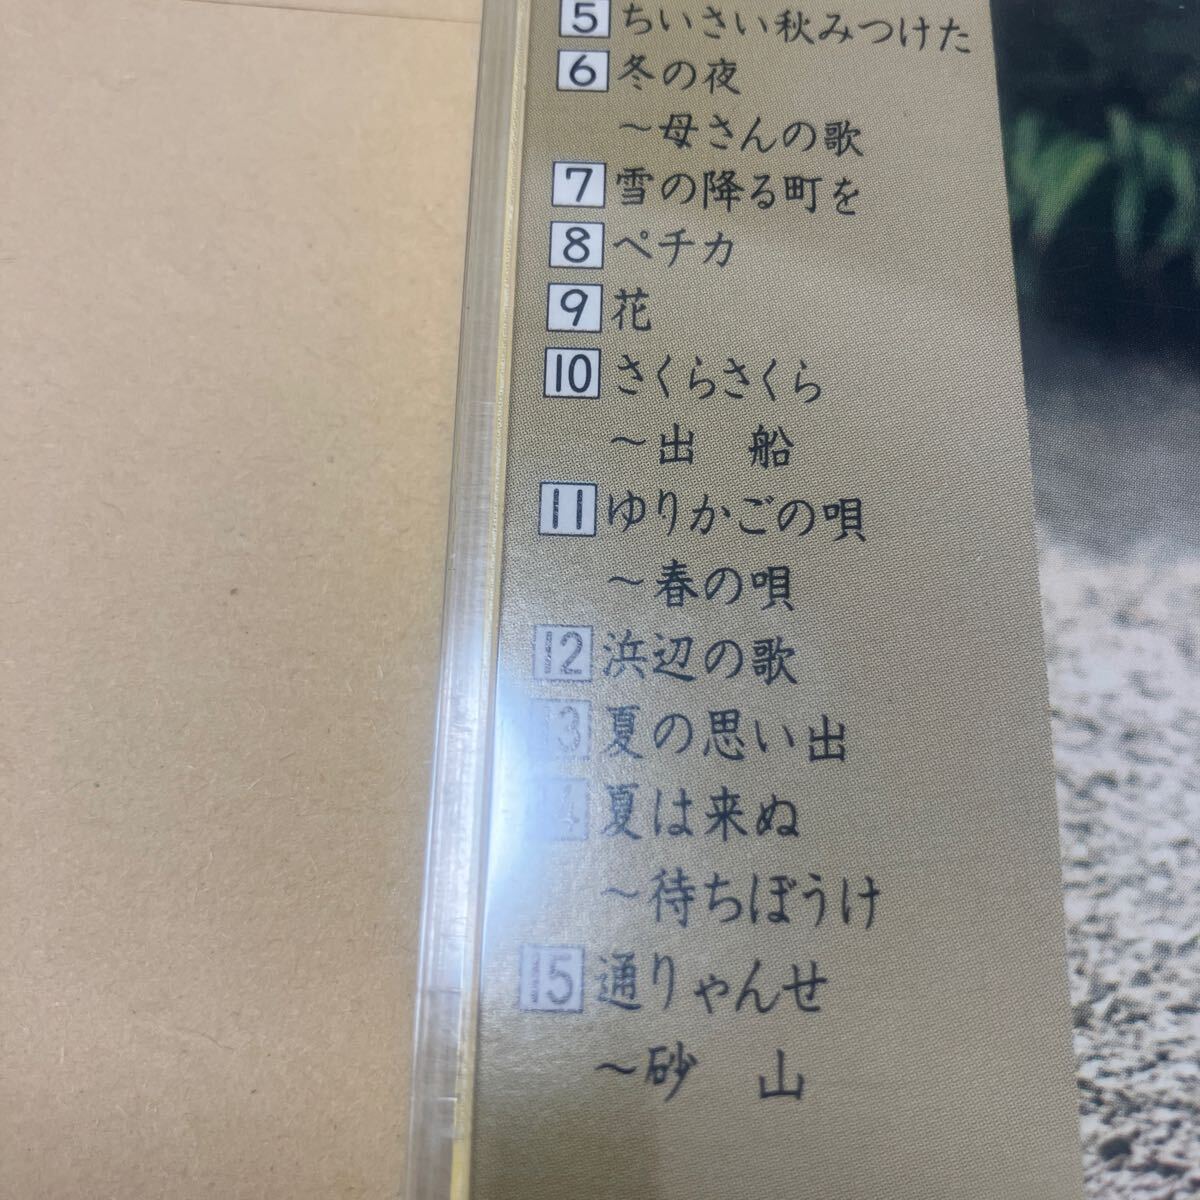 5 ちいさい秋みつけた
6 冬の夜
～母さんの歌
7 雪の降る町を
8 ペチカ
9 花
10 さくらさくら
～出 船
11 ゆりかごの唄
～春の唄
12 浜辺の歌
13 夏の思い出
14 夏は来ぬ
～待ちぼうけ
15 通りゃんせ
～砂 山